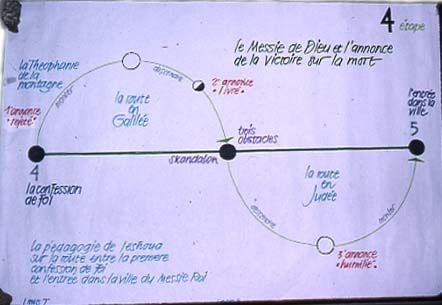 4
étape
le Messie de Dieu et l'annonce
de la victoire sur la mort
la Théophanie
de la
montagne
monter
descendre
2e annonce
"livré"
1e annonce
"rejeté"
la route
en
Galilée
l'entrée
dans la
ville
trois
obstacles
4
skandalon
5
la confession
de foi
la route
en
Judée
descendre
monter
3e annonce
"humilié"
la pédagogie de Ieshoua
sur la route entre la première
confession de foi
et l'entrée dans la ville du Messie Roi